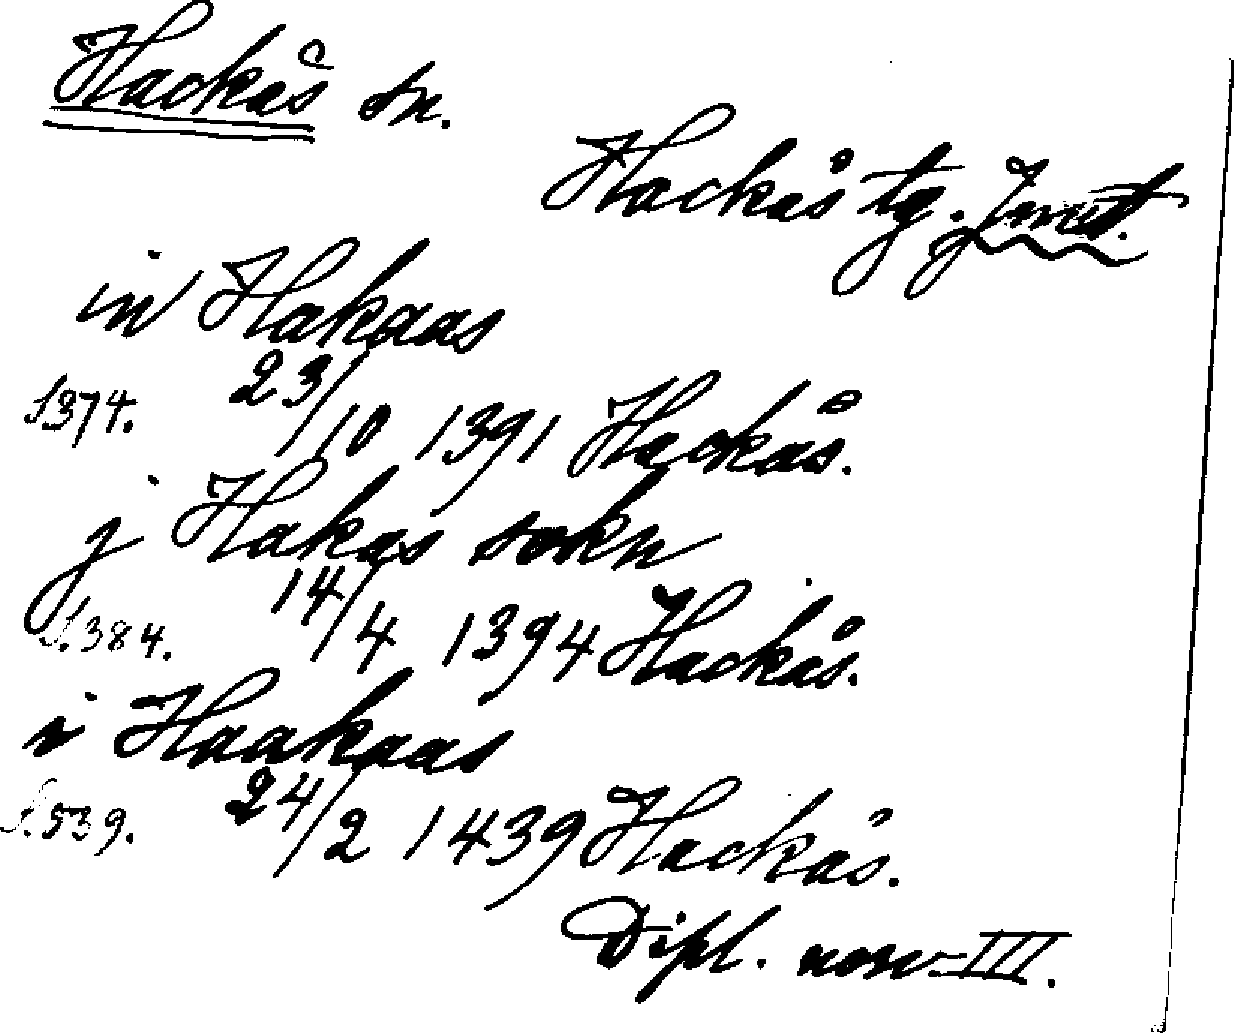 Hackås sn.
Hackås tg. Jmt.
in Hakaas
S374. 23/10 1391 Hackås.
j Hakas sokn
S.384. 14/4 1394 Hackås.
i Haakaas
S.539. 24/2 1439 Hackås.
Dipl. norv. III.